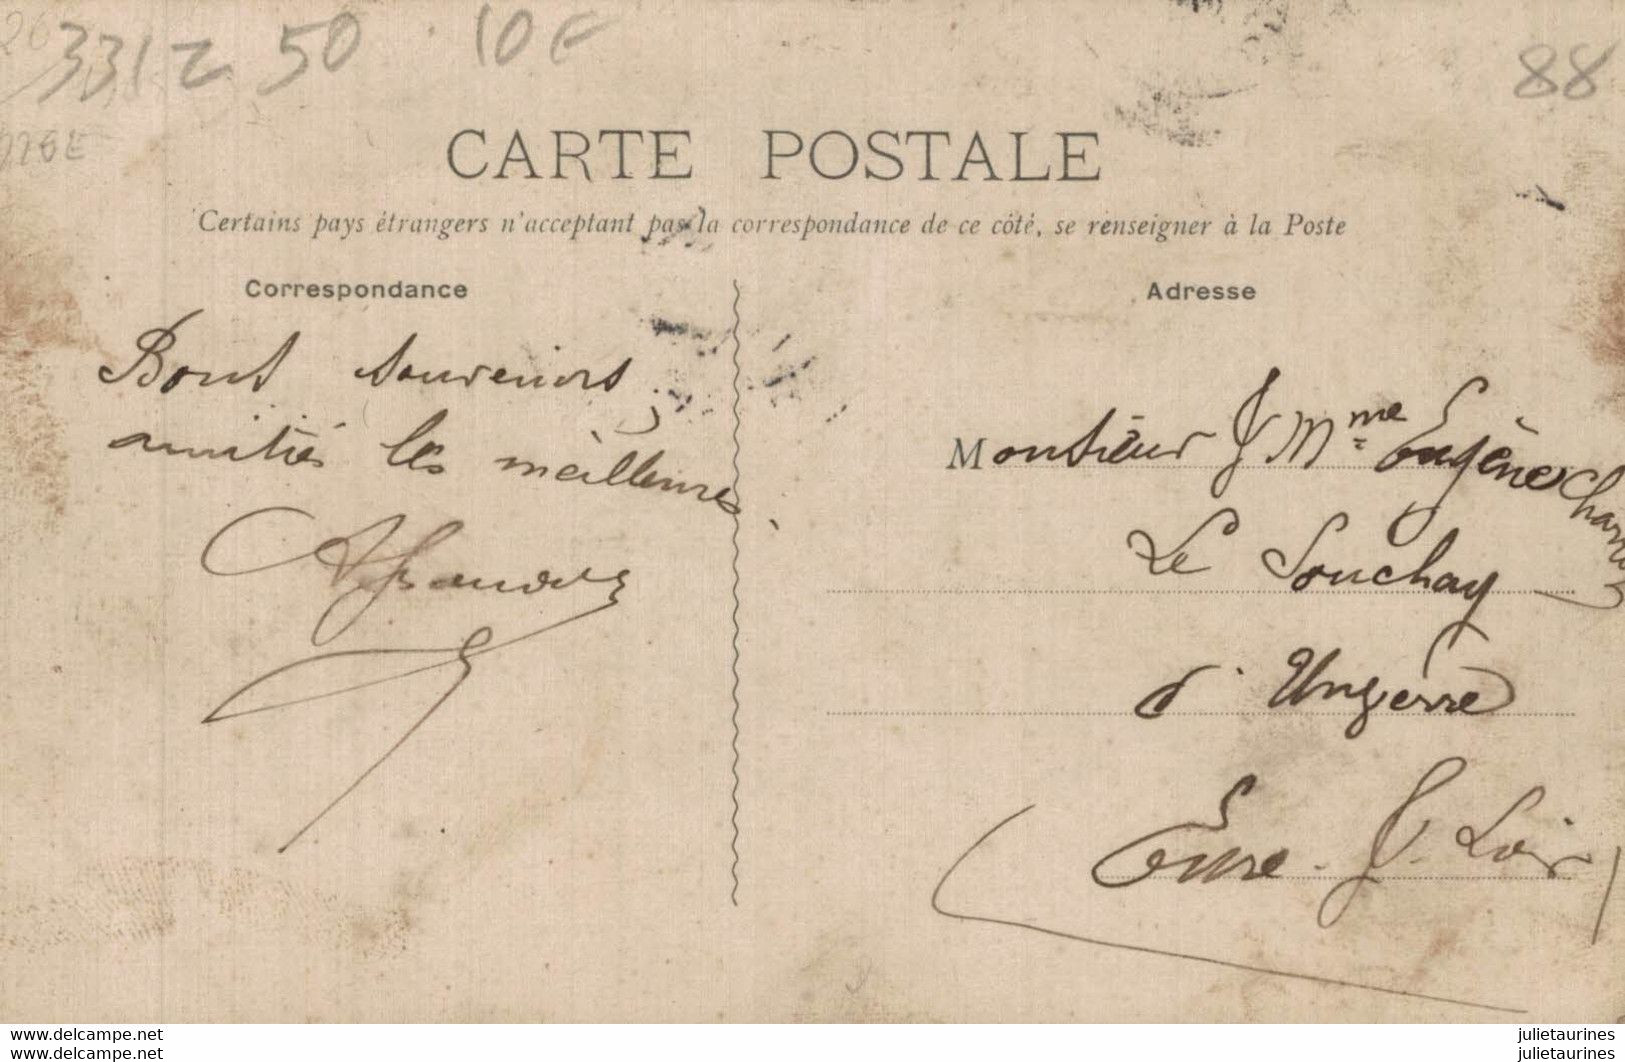 26
331 Z 50 10 F
88
CARTE POSTALE
Certains pays étrangers n'acceptant pas la correspondance de ce côté, se renseigner à la Poste
Correspondance
Bons souvenirs
amitiés les meilleures
Adresse
Monsieur & Mme Eugène
Le Souchay
d'Unverre
Eure & Loir
www.delcampe.net
www.delcampe.net
julietaurines
julietaurines